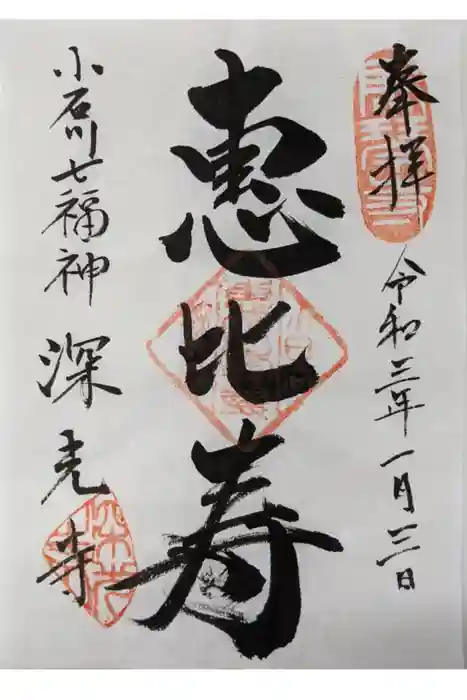 奉拝
令和三年一月三日
恵比寿
小石川七福神
深光寺